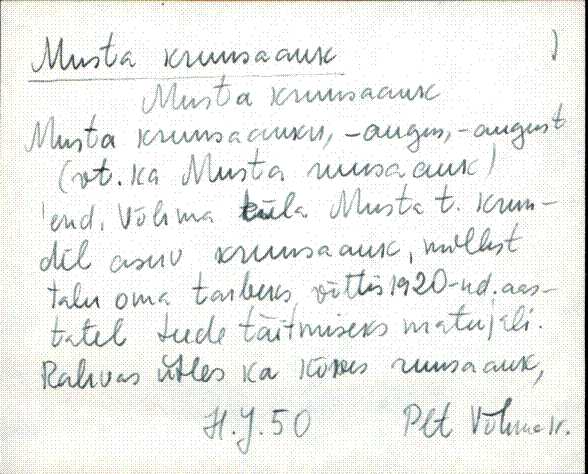 Musta kruusaauk )
Musta kruusaauk
Musta kruusaauku, -augus, -august
(vt. ka Musta ruusaauk)
end. Võhma küla Musta t. krun-
dil asuv kruusaauk, millest
talu oma tarbeks võttis 1920-nd. aas-
tatel teede täitmiseks materjali.
Rahvas ütles ka kõnes ruusaauk,
H.J. 50 Plt Võhma k.